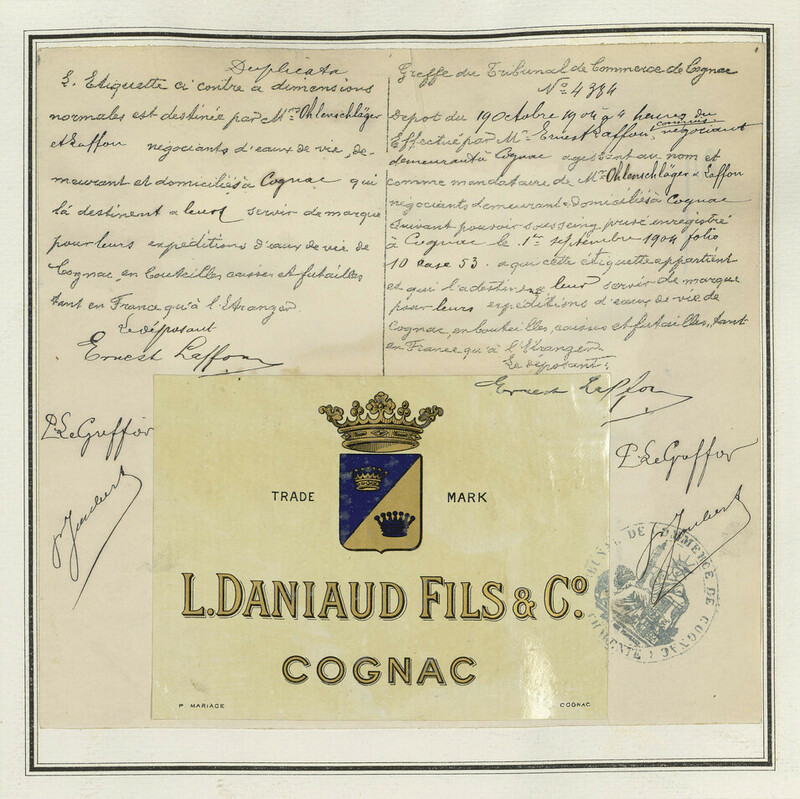 Duplicata
L'Etiquette ci contre a dimensions
normales est destinée par Mrs Ohlenschläger
et Laffon négociants d'eaux de vie, de-
meurant et domiciliés à Cognac qui
la destinent a leur servir de marque
pour leurs expéditions d'eaux de vie de
Cognac, en bouteilles caisses et futailles
tant en France qu'à l'Etranger
Le déposant
Ernest Laffon
Greffe du Tribunal de Commerce de Cognac
No 4384
Depot du 19 Octobre 1904 à 4 heures du
Effectué par Mr Ernest Laffon, négociant
demeurant à Cognac agissant au nom et
comme mandataire de Mrs Ohlenschläger & Laffon
négociants demeurant & domiciliés à Cognac
suivant pouvoir sous seing privé enregistré
à Cognac le 1er septembre 1904 folio
10 case 53. a qui cette étiquette appartient
et qui la destine a leur servir de marque
pour leurs expéditions d'eaux de vie de
Cognac, en bouteilles, caisses et futailles, tant
en France qu'à l'Etranger
Le déposant:
Ernest Laffon
P. Le Greffier
P. Le Greffier
TRADE MARK
L. DANIAUD FILS & Co.
COGNAC
P. MARIAGE
COGNAC
TRIBUNAL DE COMMERCE DE COGNAC
CHARENTE